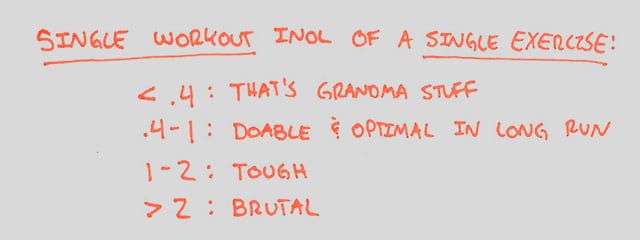 SINGLE WORKOUT INOL OF A SINGLE EXERCISE:
< .4 : THAT'S GRANDMA STUFF
.4-1 : DOABLE & OPTIMAL IN LONG RUN
1-2 : TOUGH
> 2 : BRUTAL